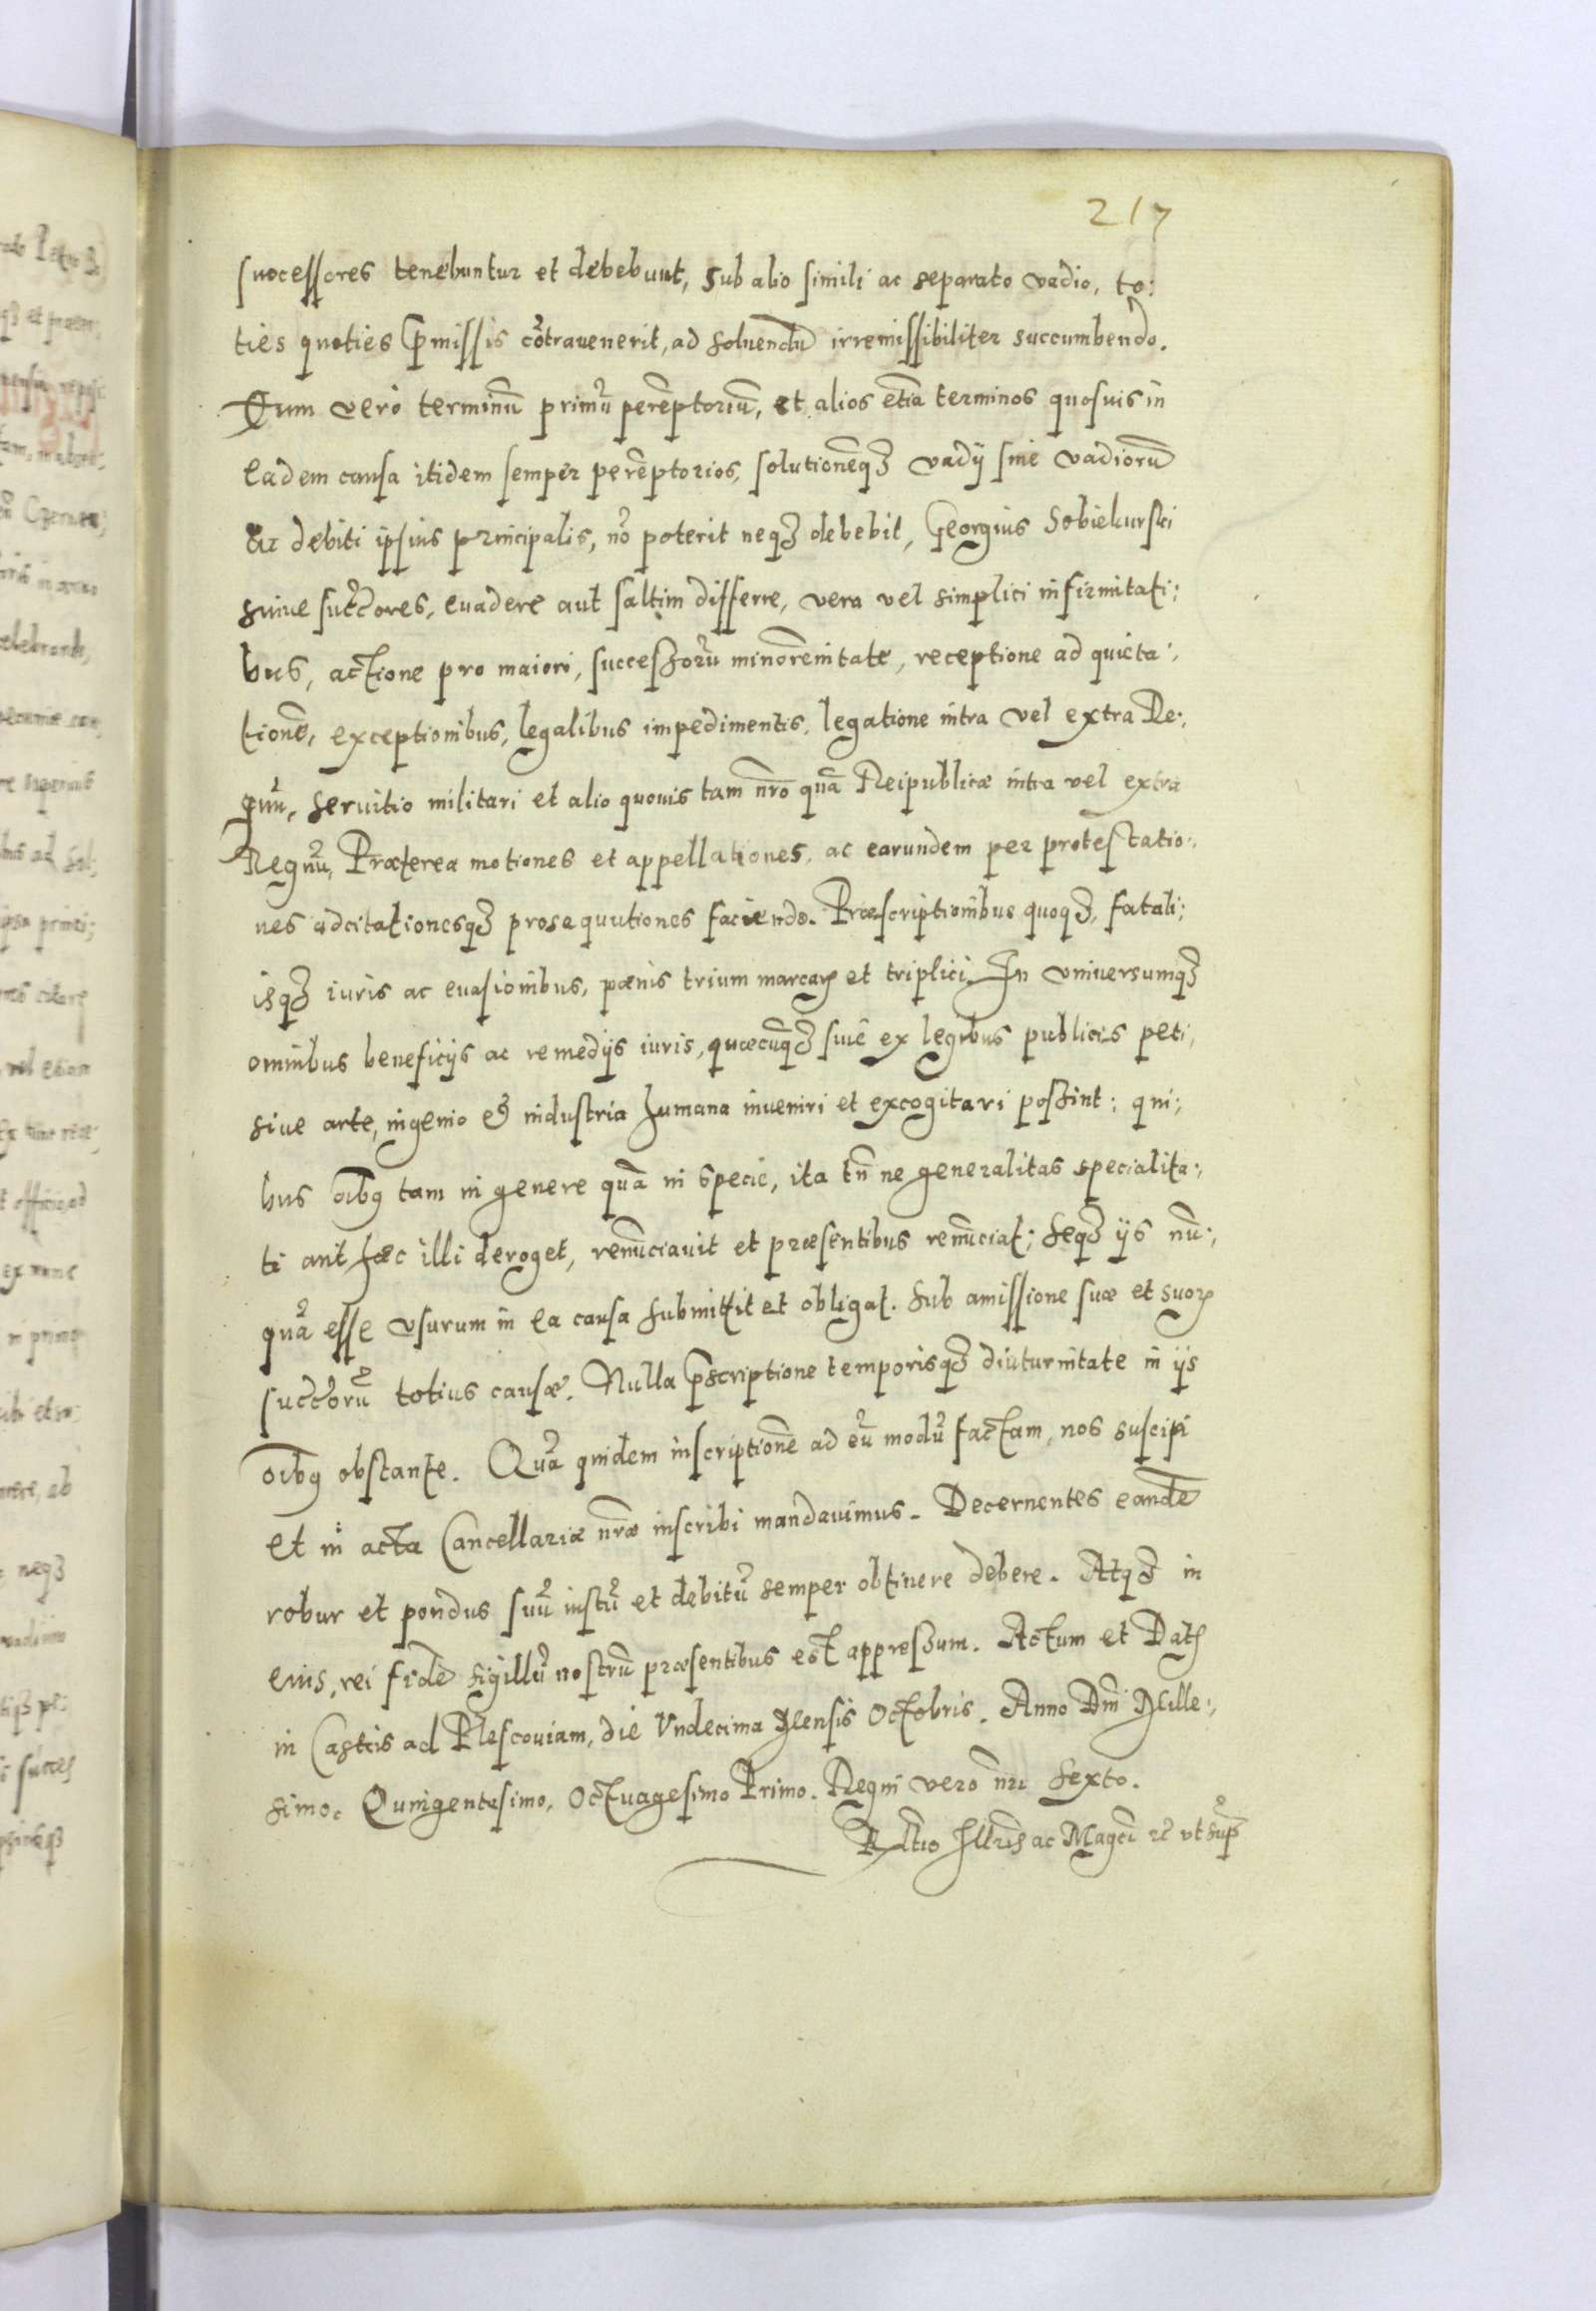 217
successores tenebuntur et debebunt, sub alio simili ac separato vadio, to:
ties quoties p̄missis cōtrauenerit, ad soluendū irremissibiliter succumbendo.
Quem vero terminū primū perēptoriū, et alios etiā terminos quosuis in
eadem causa itidem semper perēptorios, solutionēq3 vadij siue vadiorū
ac debiti ipsius principalis, nō poterit neq3 debebit, Georgius Sobiekurski
suiue succores, euadere aut saltim differre, vera vel simplici infirmitati:
bus, actione pro maiori, successorū minorennitate, receptione ad quieta:,
tionē, exceptionibus, legalibus impedimentis, legatione intra vel extra Re:,
gnū, seruitio militari et alio quouis tam nr̄o quā Reipublicæ intra vel extra
Regnū, Præterea motiones et appellationes, ac earundem per protestatio:,
nes adcitationesq3 prosequutiones faciendo. Præscriptionibus quoq3, fatali:
isq3 iuris ac euasionibus, pœnis trium marcarꝝ et triplici. In vniuersumq3
omnibus beneficijs ac remedijs iuris, quæcūq3 siue ex legibus publicis peti,
siue arte, ingenio & industria humana inueniri et excogitari possint: qui:
bus oībꝯ tam in genere quā in specie, ita tn̄ ne generalitas specialita:,
ti aut hæc illi deroget, renūciauit et præsentibus renūciat; seq3 ijs nū:,
quā esse vsurum in ea causa submittit et obligat. sub amissione suæ et suorꝝ
succorū totius causæ. Nulla p̄scriptione temporisq3 diuturnitate in ijs
oībꝯ obstante. Quā quidem inscriptionē ad eū modū factam, nos suscipi
et in acta Cancellariæ nr̄æ inscribi mandauimus. Decernentes eandē
robur et pondus suū iustū et debitū semper obtinere debere. Atq3 in
eius, rei fidē sigillū nostrū præsentibus est appressum. Actum et Datꝝ
in Castris ad Plescouiam, die Vndecima Mensis Octobris. Anno Dn̄i Mille:,
simo. Quingentesimo, Octuagesimo Primo. Regni vero nr̄i sexto.
Rltio Illris ac Magci rc vt sup̄